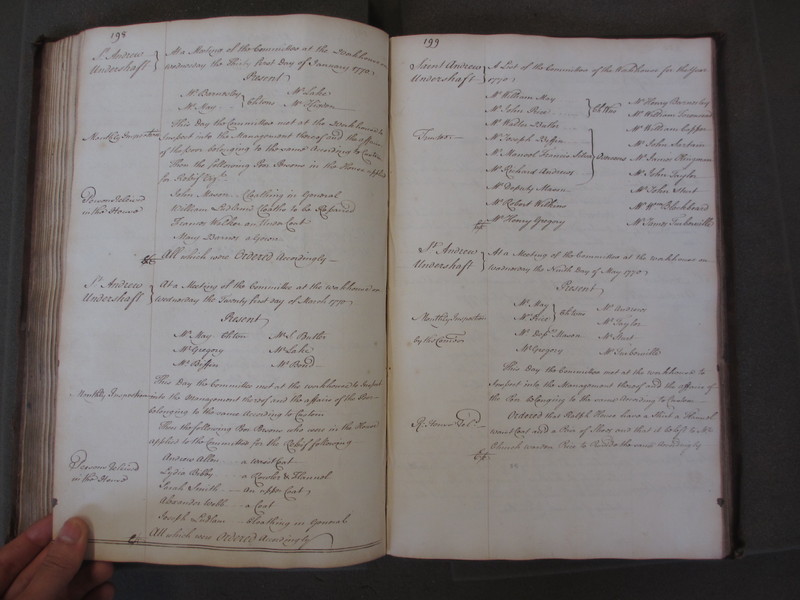 198
St. Andrew Undershaft
At a Meeting of the Committee at the Workhouse on
Wednesday the Thirty first Day of January 1770
Present
Mr Barnesley Mr Lake
Mr May
This Day the Committee met at the Workhouse to
Inspect into the Management thereof and the affairs
of the Poor belonging to the same According to Custom
Then the following Poor Persons in the House applied
for Relief Vizt.
Persons Relieved
in the House
John Mason Cloathing in General
William Ludlam Cloaths to be Repaired
Frances Welcher an Under Coat
Mary Barnes a Gown
All which were Ordered Accordingly
St. Andrew Undershaft
At a Meeting of the Committee at the Workhouse on
Wednesday the Twenty first day of March 1770
Present
Mr May Mr J. Butler
Mr Gregory Mr Lake
Mr Biffin Mr Bond
Monthly Inspection
This Day the Committee met at the Workhouse to Inspect
into the Management thereof and the affairs of the Poor
belonging to the same According to Custom
Then the following Poor Persons who were in the House
applied to the Committee for the Relief following
Persons Relieved
in the House
Andrew Allen a Waist Coat
Lydia Bibby & Flannel
Sarah Smith An upper Coat
Alexander Webb a Coat
Joseph Ludlam Cloathing in General
All which were Ordered Accordingly
199
Saint Andrew Undershaft
A List of the Committee of the Workhouse for the Year
1770
Mr William May
Mr Henry Barnesley
Mr John Price
Mr William Townsend
Mr Butler
Mr William Cooper
Mr Joseph Biffin
Mr John Sartain
Mr Francis
Mr James Chapman
Mr Richard Andrews
Mr John Taylor
Mr Deputy Mason
Mr John Hunt
Mr Robert Wilkins
Mr Wm Blackband
Mr Henry Gregory
Mr James Turbeville
St. Andrew Undershaft
At a Meeting of the Committee at the Workhouse on
Wednesday the Ninth Day of May 1770
Present
Mr May Mr Andrews
Mr Price Mr Taylor
Mr Depy Mason Mr Hunt
Mr Gregory Mr Turbeville
Monthly Inspection
This Day the Committee met at the Workhouse to
Inspect into the Management thereof and the affairs of
the Poor Belonging to the same According to Custom
Ordered that Ralph House have a Shirt a Flannel
Waist Coat and a Pair of Shoes and that it be left to Mr
Church warden Price to Provide the same Accordingly